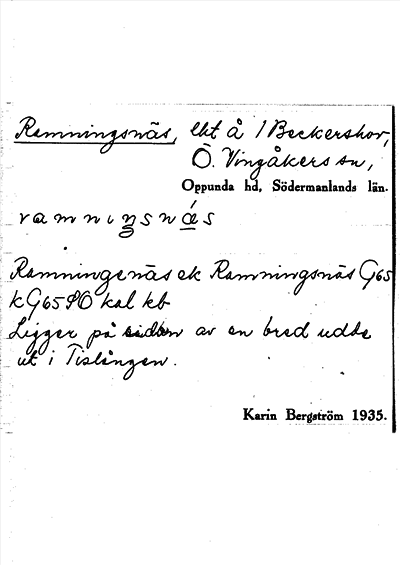 Ramningsnäs, lht å 1 Beckershov,
Ö. Vingåkers sn,
Oppunda hd, Södermanlands län.
ramnıŋsnæ̀s
Ramningenäs ek Ramningsnäs G65
k G65 SO kal kb
Ligger på sidan av en bred udde
ut i Tislången.
Karin Bergström 1935.